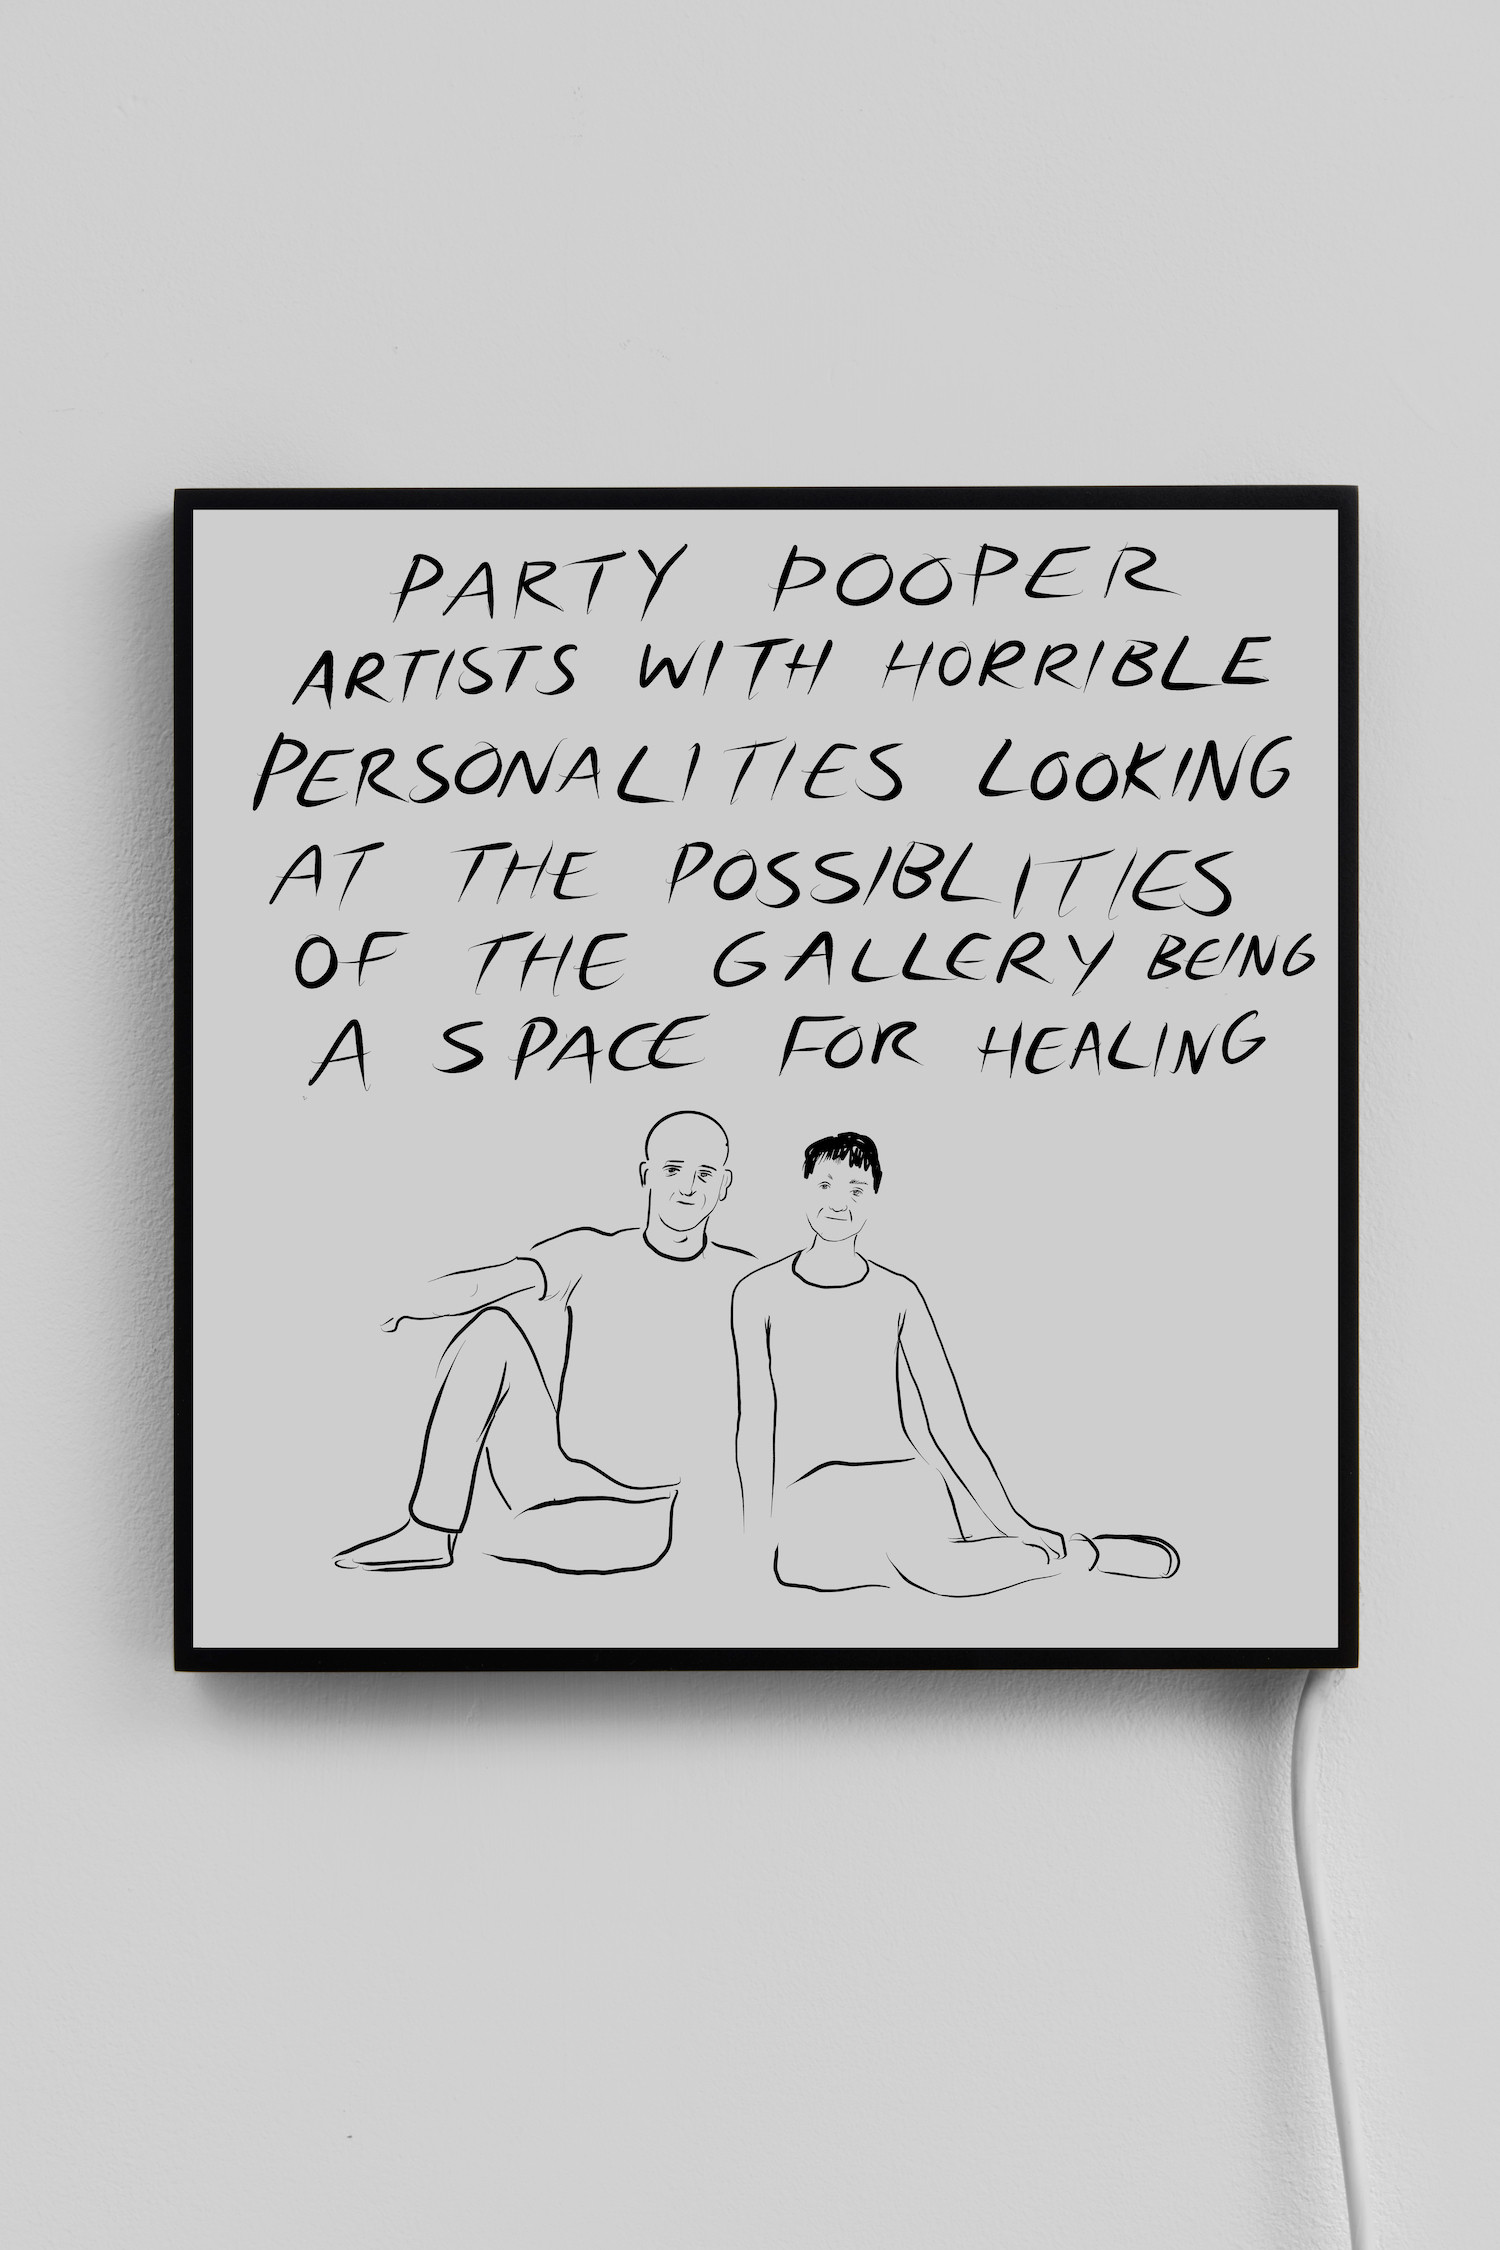 PARTY POOPER
ARTISTS WITH HORRIBLE
PERSONALITIES LOOKING
AT THE POSSIBLITIES
OF THE GALLERY BEING
A SPACE FOR HEALING